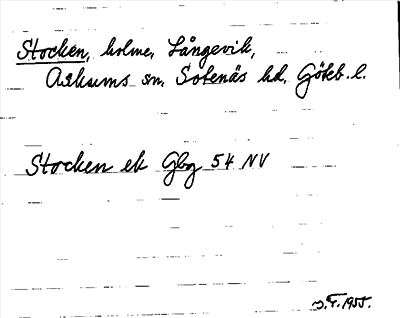 Stocken, holme, Långevik,
Askums sn, Sotenäs hd, Göteb. l.
Stocken ek Gbg 54 NV
J.F. 1955.